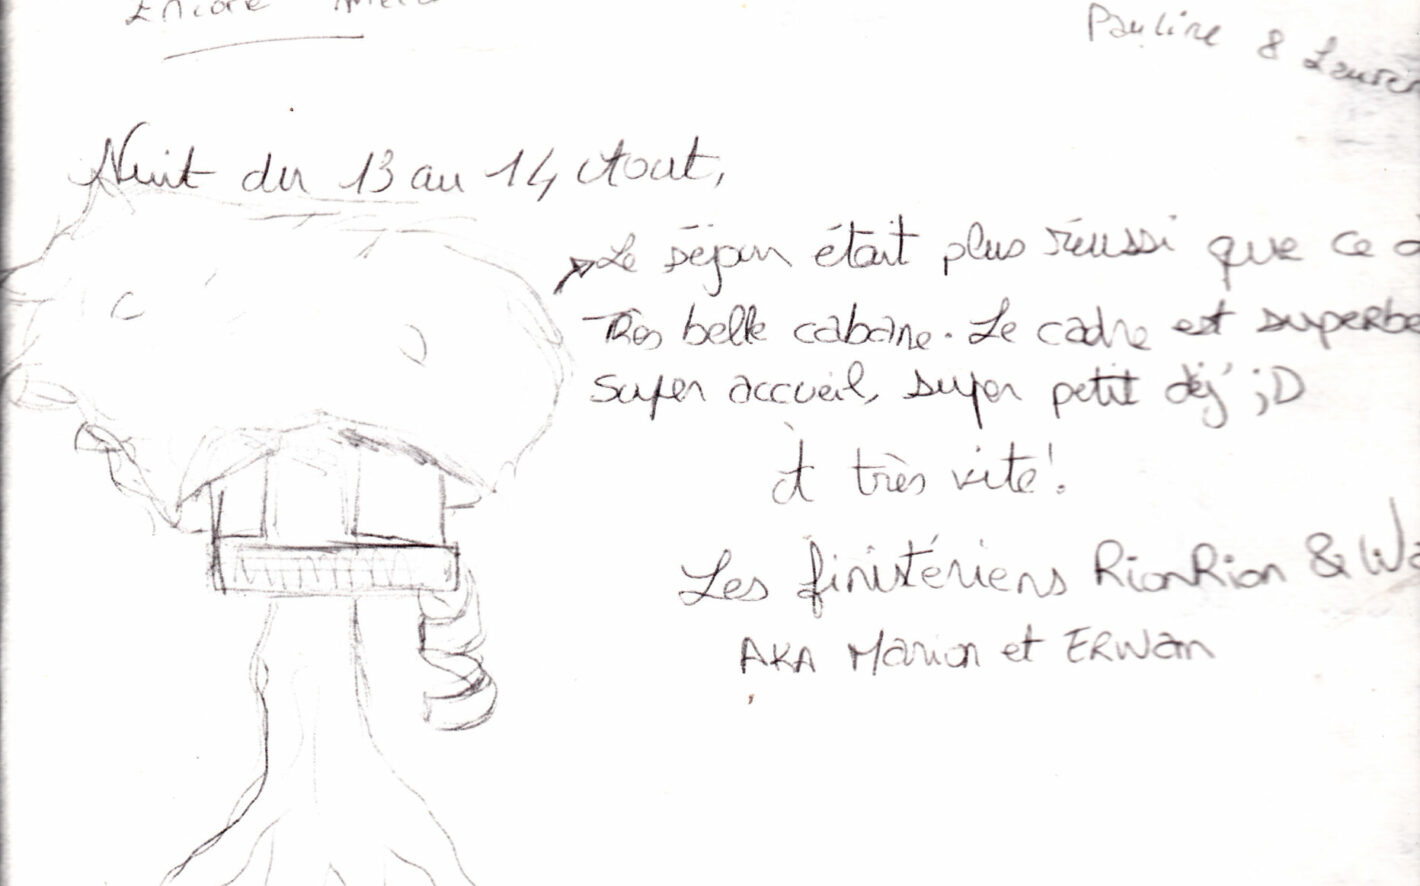 Encore
Pauline &
Nuit du 13 au 14 Aout,
Le séjour était plus réussi que ce
Très belle cabane. Le cadre est superbe
super accueil, super petit déj' ;D
A très vite!
Les finistériens RionRion &
AKA Marion et ERWan